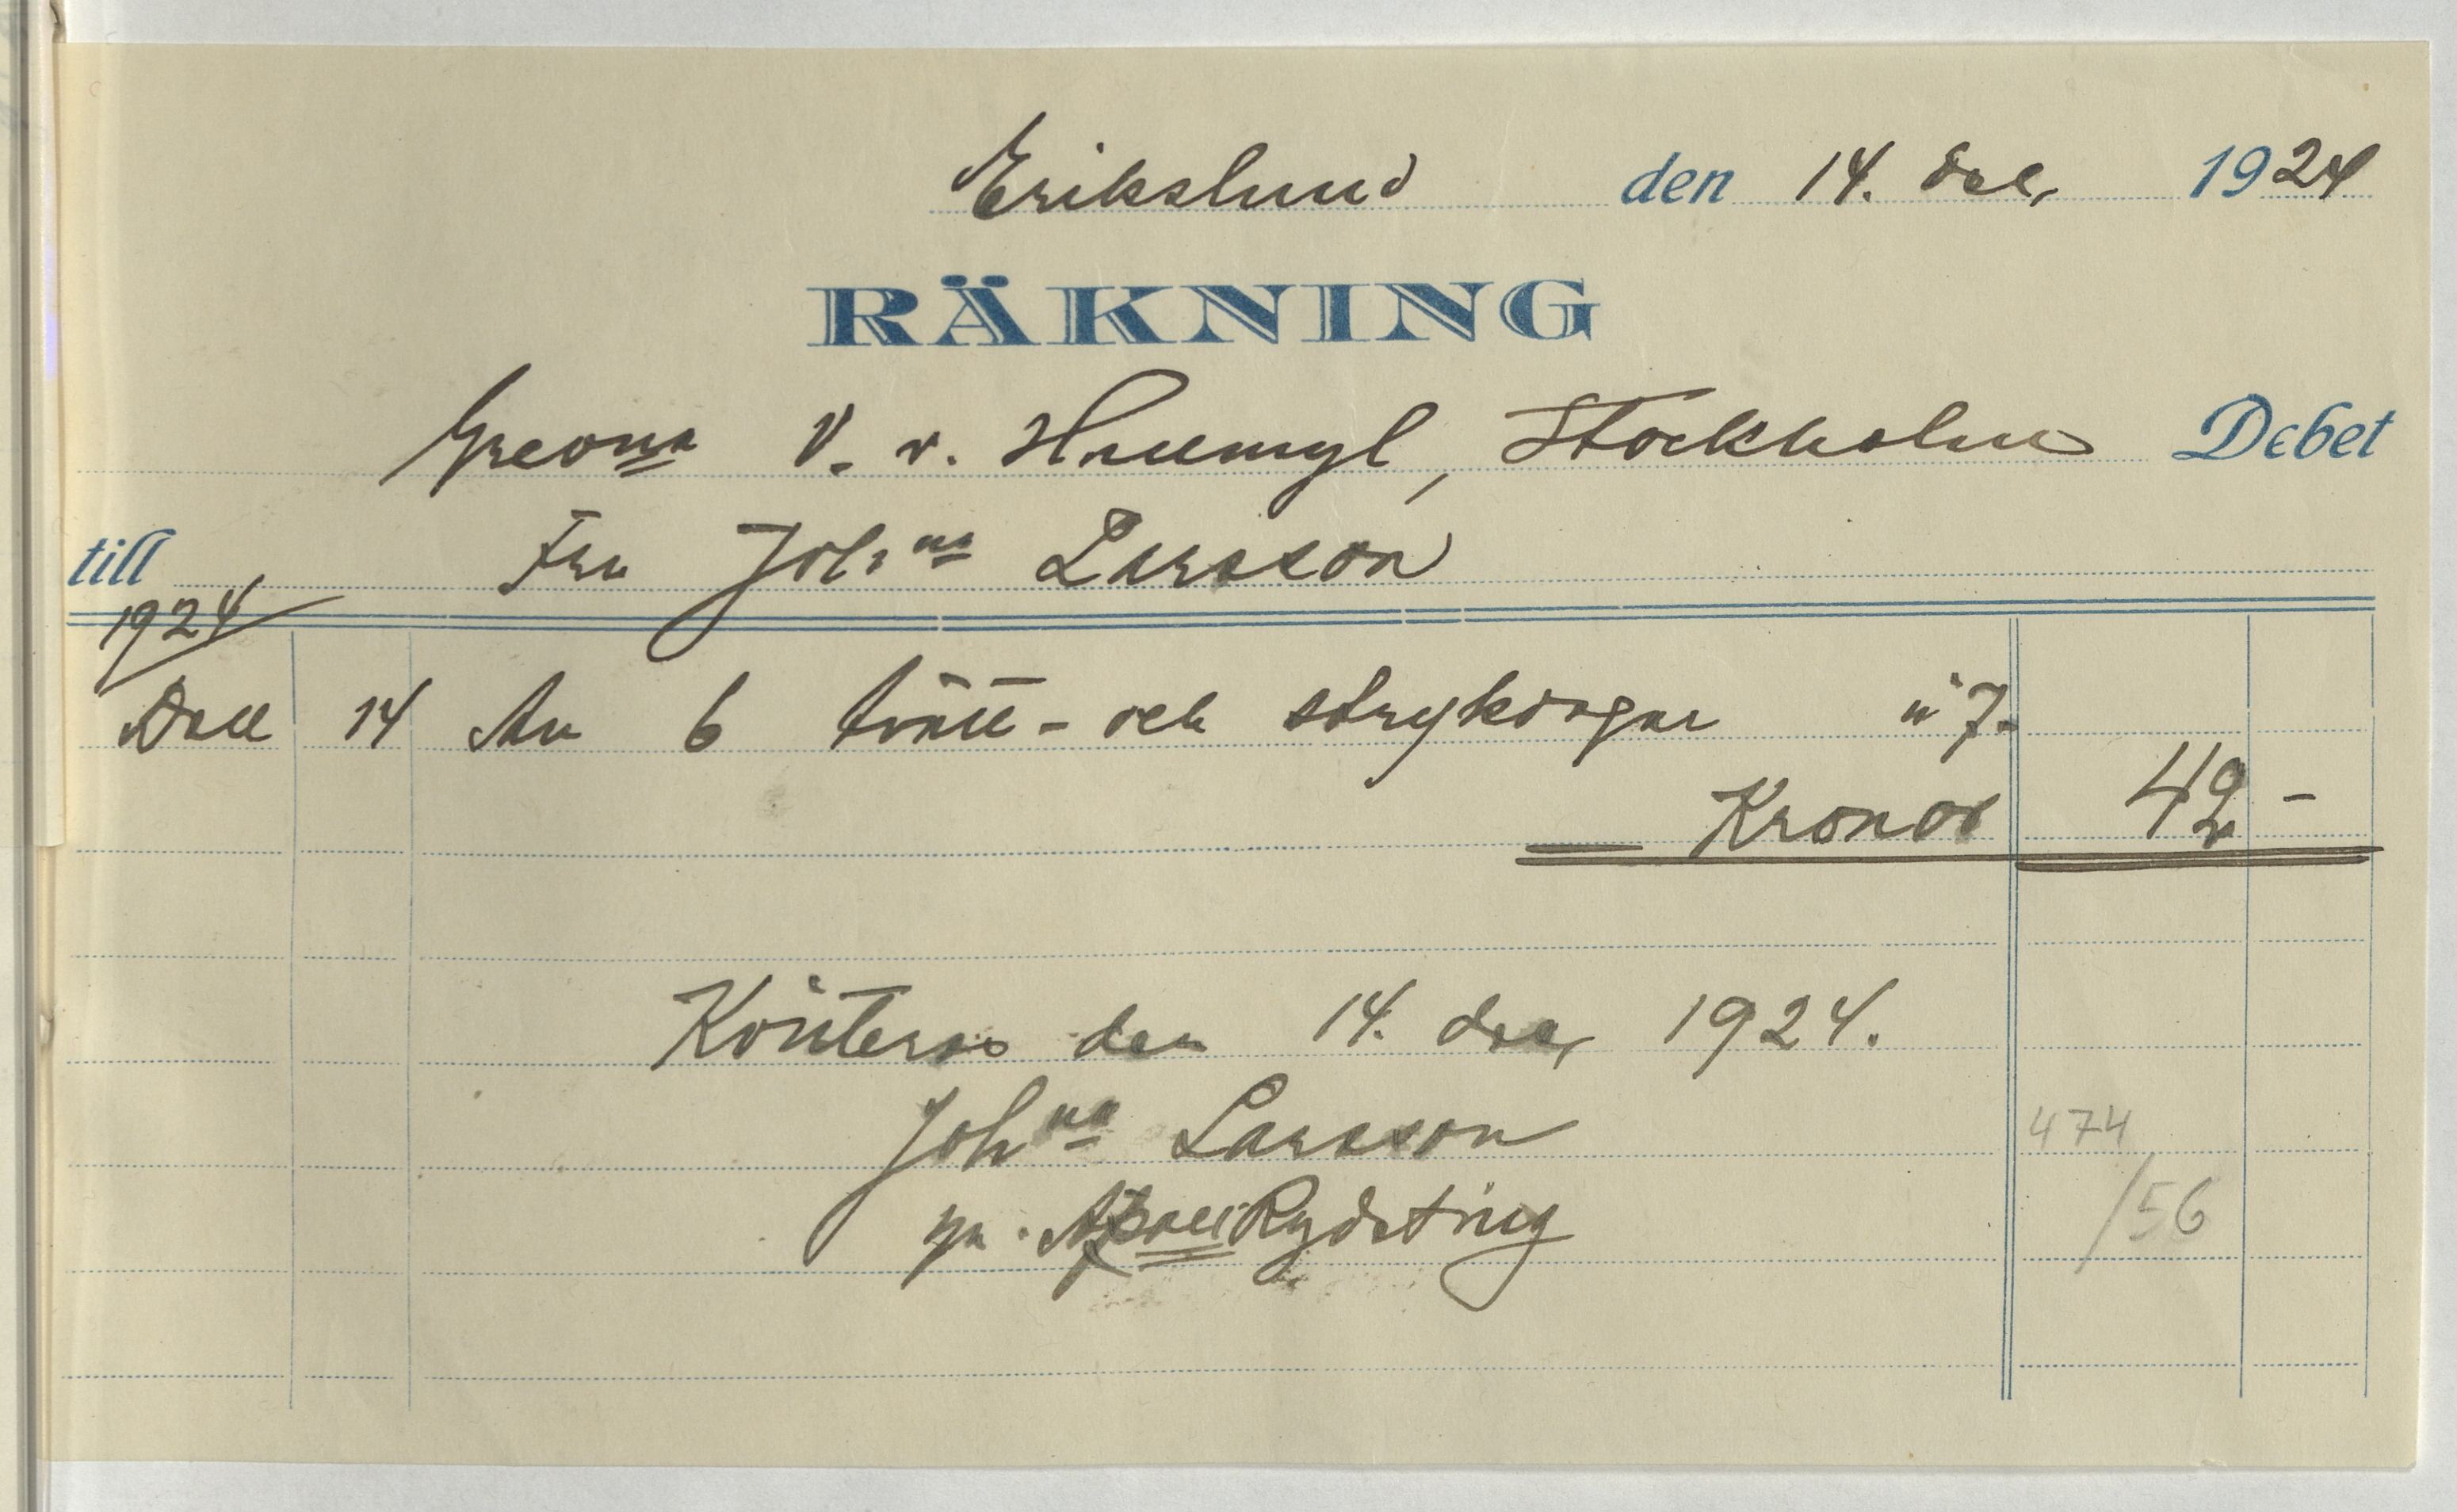 Erikslund den 14. dec. 1924
RÄKNING
Grevna V. v. Hallwyl, Stockholm Debet
till Fru Joh:na Larsson
1924
Dec 14 An 6 tvätt- och strykdagar à 7.-
Kronor 42 -
Kvitteras den 14. dec. 1924.
Joh:na Larsson
474
Rydsting
/56